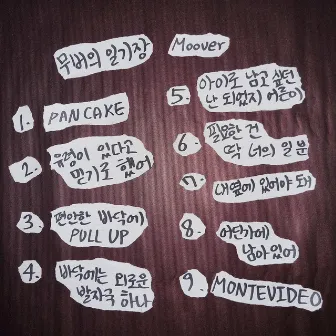 무버의 일기장
Moover
1. PANCAKE
2. 유령이 있다고
믿기로 했어
3. 편안한 바닥에
PULL UP
4. 바닥에는 외로운
발자국 하나
5. 아이로 남고 싶던
난 되었지 어른이
6. 필요한 건
딱 너의 일 분
7. 내 옆에 있어야 돼
8. 어딘가에
남아있어
9. MONTEVIDEO